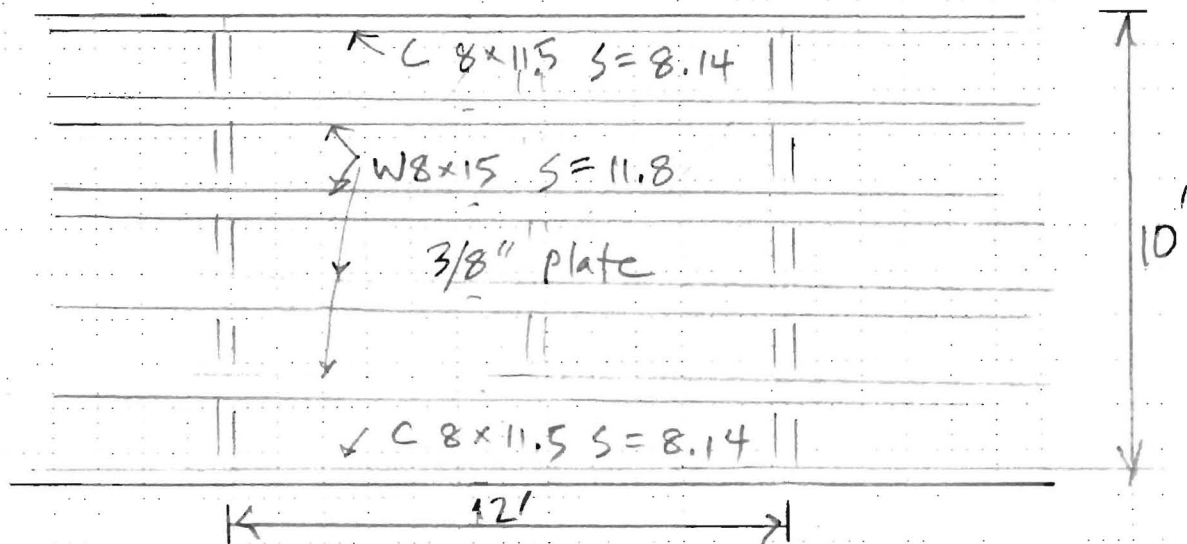 C 8×11.5 S=8.14
W8×15 S=11.8
3/8" plate
10'
C 8×11.5 S=8.14
12'